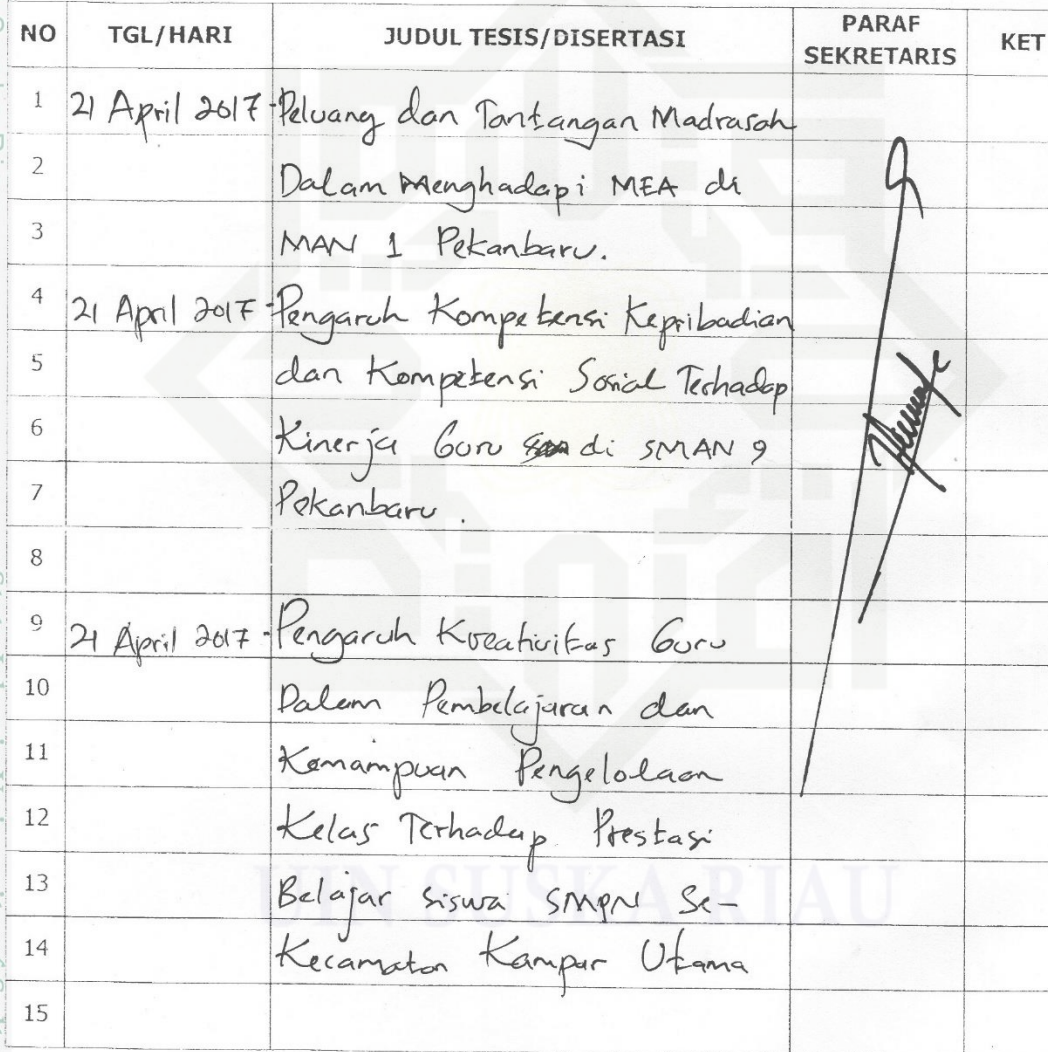 NO TGL/HARI JUDUL TESIS/DISERTASI PARAF SEKRETARIS KET
1 21 April 2017 - Peluang dan Tantangan Madrasah
2 Dalam Menghadapi MEA di
3 MAN 1 Pekanbaru.
4 21 April 2017 - Pengaruh Kompetensi Kepribadian
5 dan Kompetensi Sosial Terhadap
6 Kinerja Guru di SMAN 9
7 Pekanbaru.
8
9 21 April 2017 - Pengaruh Kreativitas Guru
10 Dalam Pembelajaran dan
11 Kemampuan Pengelolaan
12 Kelas Terhadap Prestasi
13 Belajar Siswa SMPN Se-
14 Kecamatan Kampar Utama
15
UIN SUSKA RIAU